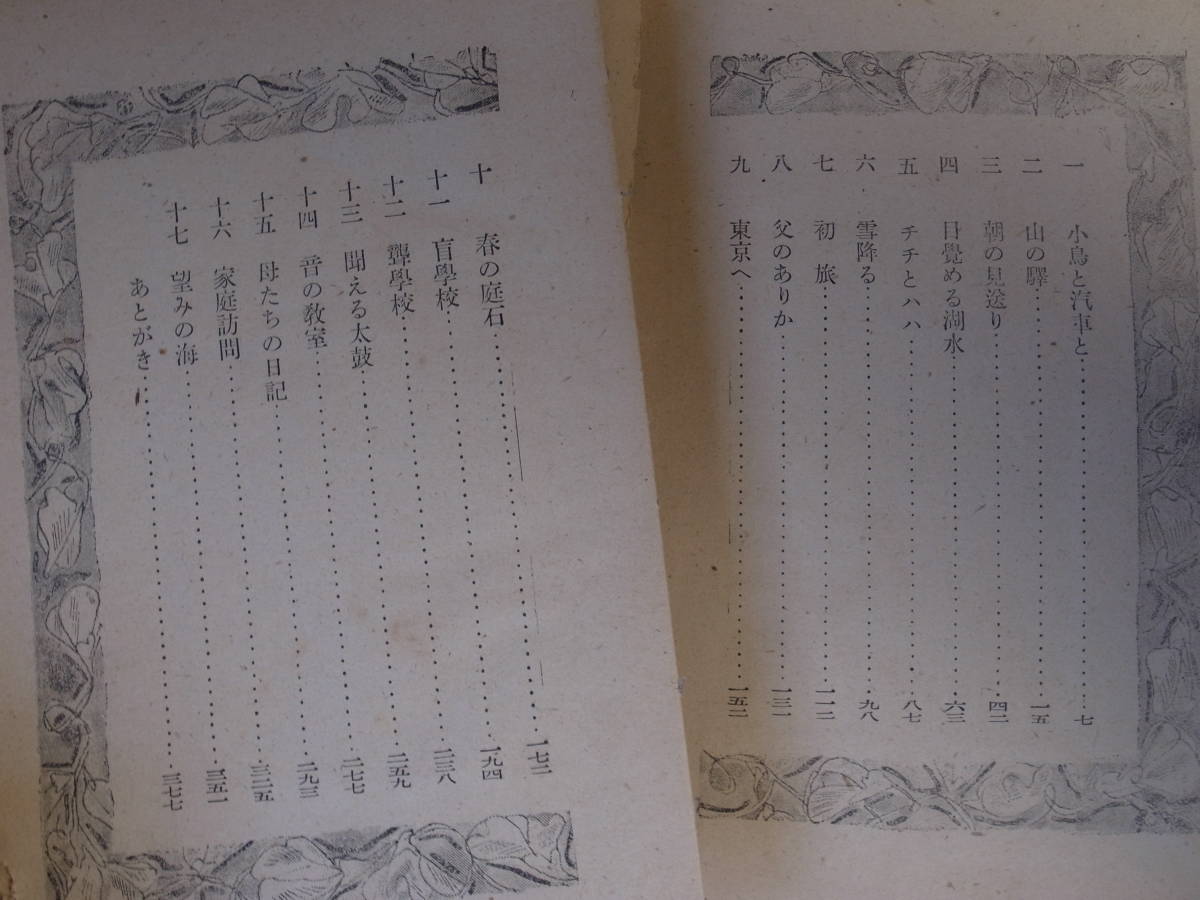 一 小鳥と汽車と……七
二 山の驛……一五
三 朝の見送り……四二
四 目覺める湖水……六三
五 チチとハハ……八七
六 雪降る……九八
七 初旅……一一二
八 父のありか……一三一
九 東京へ……一五二
十 春の庭石……一七二
十一 盲學校……一九四
十二 聾學校……二三八
十三 聞える太鼓……二五九
十四 音の教室……二七七
十五 母たちの日記……二九三
十六 家庭訪問……三二五
十七 望みの海……三五一
あとがき……三七七